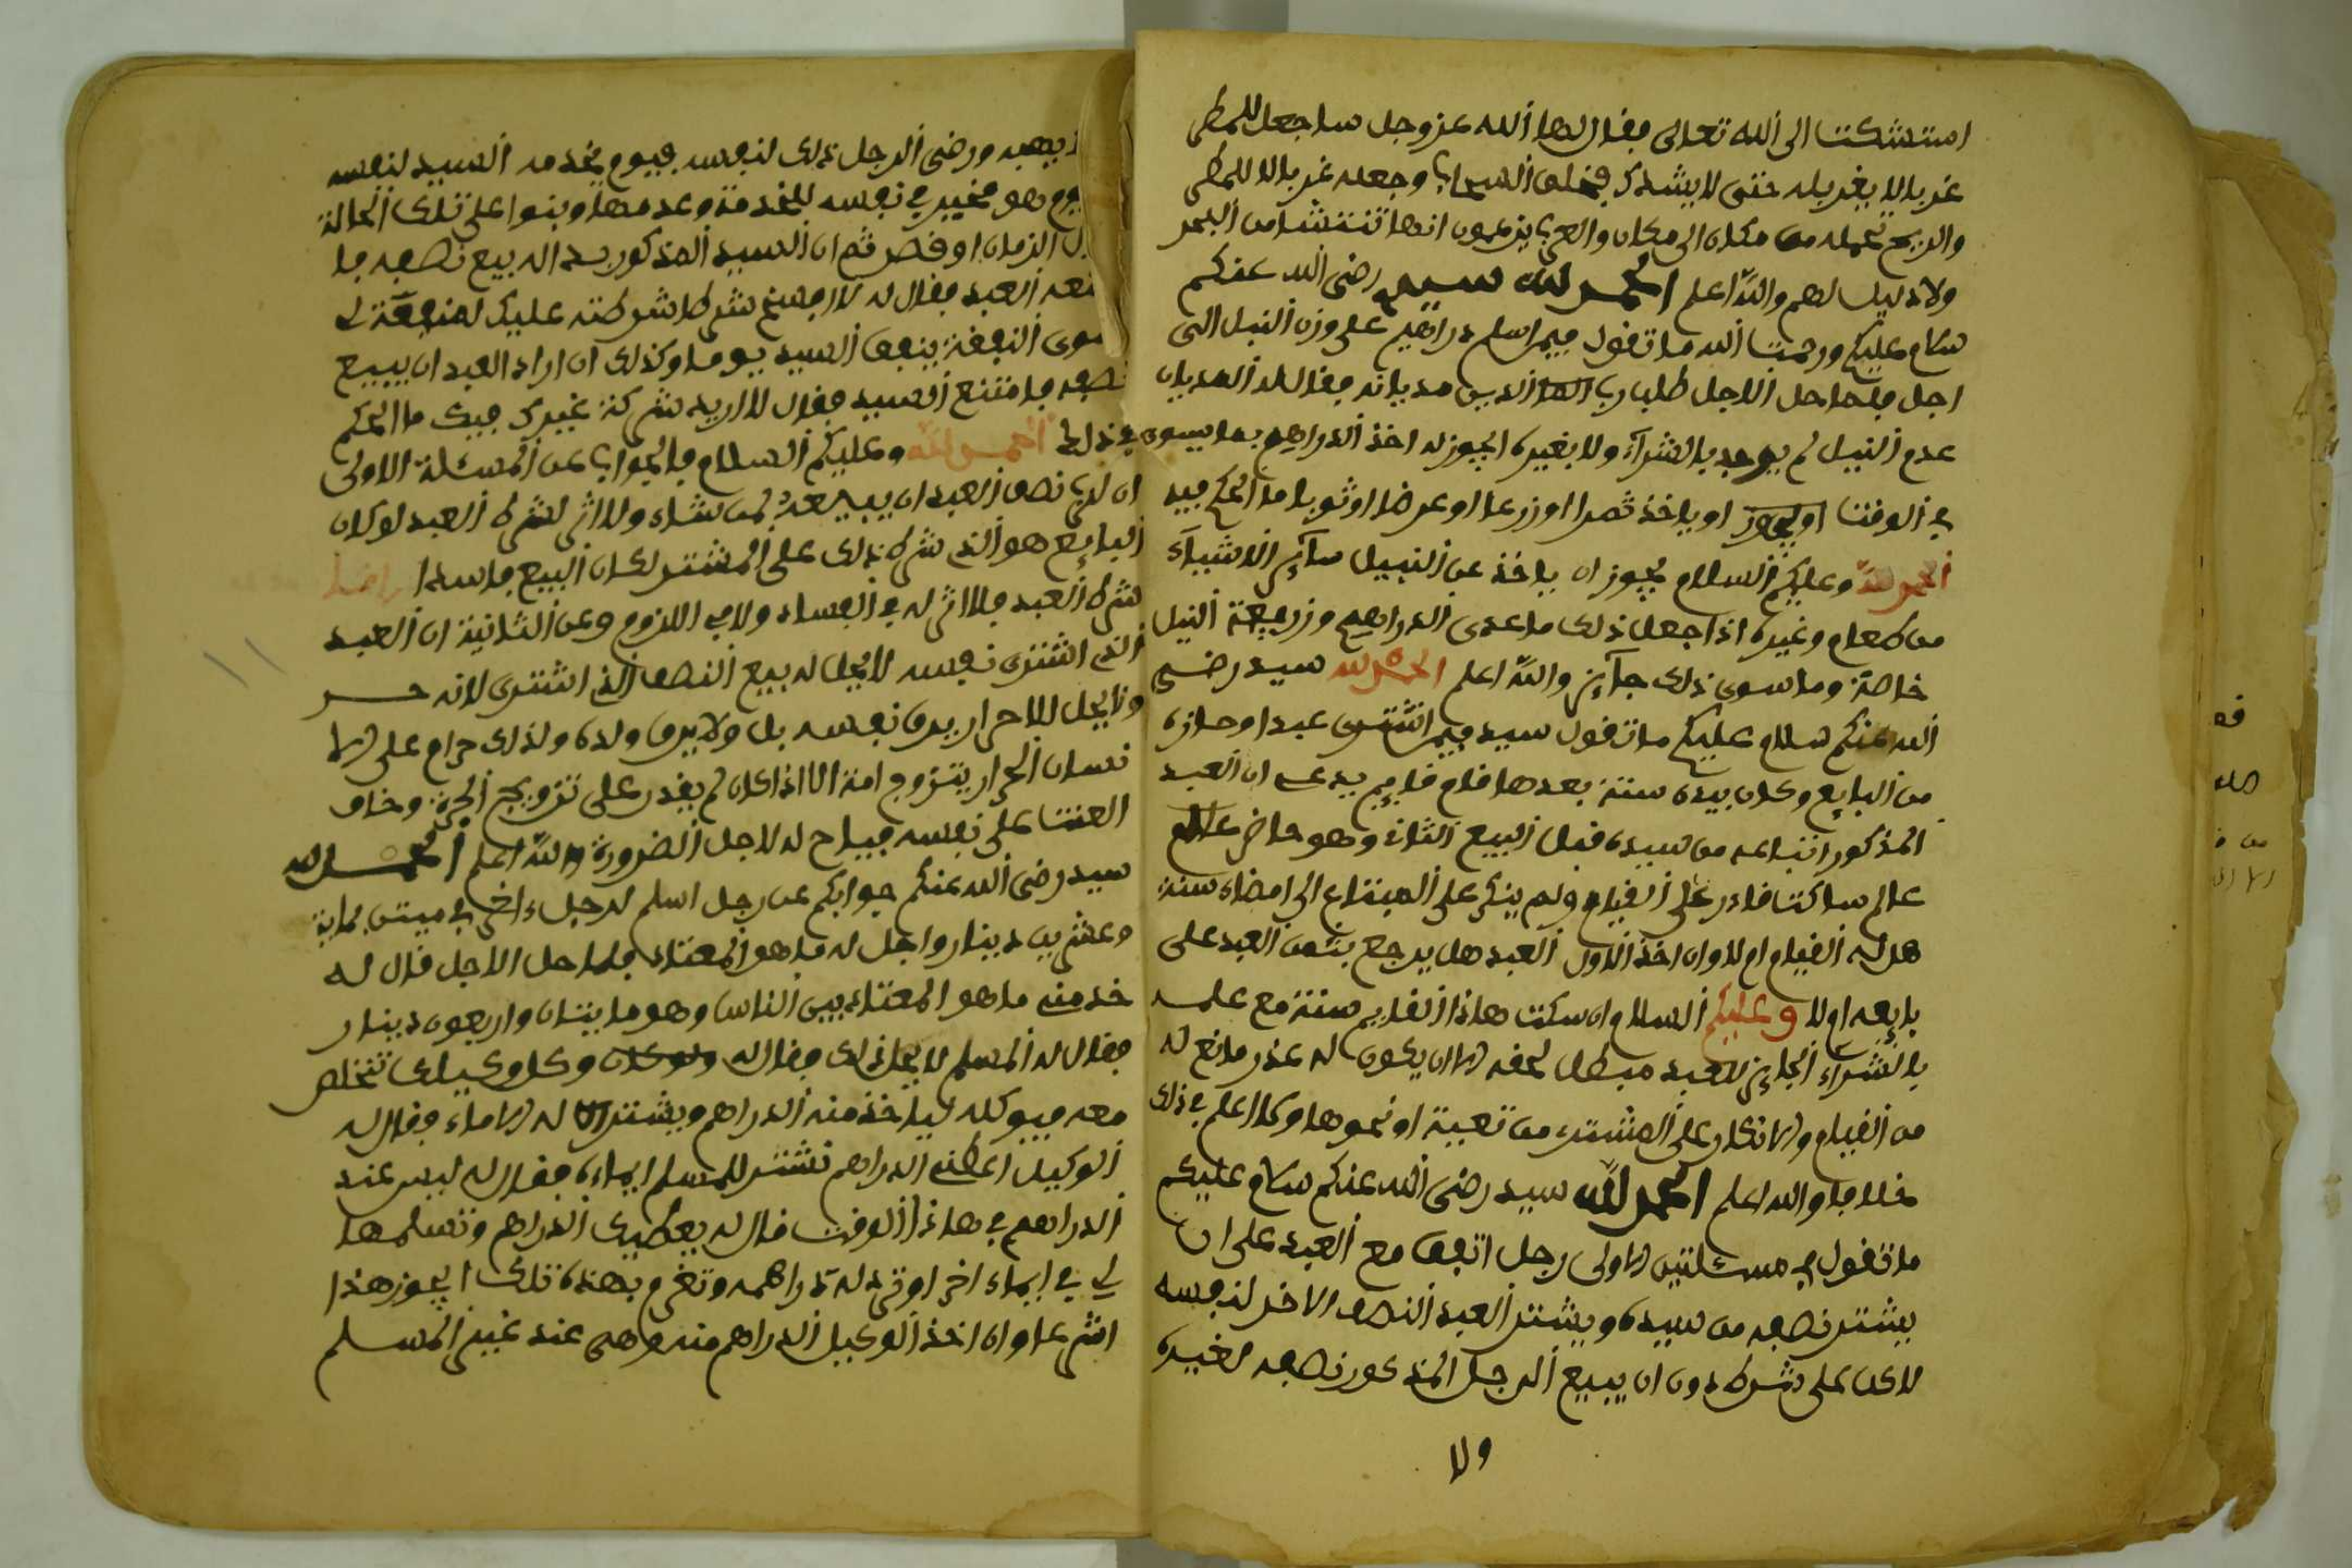 استشكت الى الله تعالى فقال لها الله عز وجل ساجعل للمطر
غربالا يغربله حتى لا يشدك فخلق السحاب وجعله غربالا للمطر
والريح تحمله من مكان الى مكان والعرب يزعمون انها تنتشا من البحر
ولا دليل لهم والله اعلم الحمد لله سيد رضى الله عنكم
سلام عليكم ورحمت الله ما تقول فيمن اسلم دراهم على وزن النيل الى
اجل فلما حل الاجل طلب رب الدين مديانه فقال له المديان
عدم النيل لم يوجد بالشراء ولا بغيره ايجوز له اخذ الدراهم بما يسوى
في الوقت او ياخذ تمرا او زرعا او عرضا او ثوبا ما الحكم فيه
الحمد لله وعليكم السلام يجوز ان ياخذ عن النيل سائر الاشياء
من طعام وغيره اذا جعل ذلك ما عدى الدراهم وزريعة النيل
خاصة وما سوى ذلك جائز والله اعلم الحمد لله سيد رضى
الله عنكم سلام عليكم ما تقول سيد فيمن اشترى عبدا وحازه
من البايع وكان بيده سنة بعدها قام قايم يدعى ان العبد
المذكور ابتاعه من سيده قبل البيع الثانى وهو حاضر
عالم ساكت قادر على القيام ولم ينكر على المبتاع الى امضاء سنة
هل له القيام ام لا وان اخذ الاول العبد هل يرجع بثمن العبد على
بايعه ام لا وعليكم السلام ان سكت هاذا القايم سنة مع علمه
بالشراء الجايز للعبد مبطل لحقه الا ان يكون له عذر مانع له
من القيام والانكار على المشتر من تعيبة او نحوها وكلا اعلم في ذلك
خلافا والله اعلم الحمد لله سيد رضى الله عنكم سلام عليكم
ما تقول في مسئلتين الاولى رجل اتفق مع العبد على ان
يشتر نصفه من سيده ويشتر العبد النصف الاخر لنفسه
لاكن على شرط دون ان يبيع الرجل المذكور نصفه لغيره
ولا
يهبه ورضى الرجل ذلك لنفسه فيوم يخدمه السيد لنفسه
يوم هو مخير في نفسه للخدمة وعدمها وبنوا على تلك الحالة
الزمان او قصر ثم ان السيد المذكور بدا له بيع نصفه فا
منعه العبد فقال له لا افسخ شرطا شرطته عليك لمنفعة لى
سوى النفقة ينفق السيد يوما وكذلك ان اراد العبد ان يبيع
نصفه فامتنع السيد فقال لا اريد شركة غيرك فيك ما الحكم
في ذلك الحمد لله وعليكم السلام فالجواب عن المسئلة الاولى
ان لرب نصف العبد ان يبيعه لمن شاء ولا اثر لشرط العبد لو كان
البايع هو الذى شرط ذلك على المشتر لكان البيع فاسدا
شرط العبد فلا اثر له في الفساد ولا في اللزوم وعن الثانية ان العبد
الذى اشترى نفسه لا يحل له بيع النصف الذى اشترى لانه حر
ولا يحل للاحر ان يرق نفسه بل ولا يرق ولده ولذلك حرام على الا
نسان الحر ان يتزوج امة الا اذا كان لم يقدر على تزويج الحرة وخاف
العنت على نفسه فيباح له لاجل الضرورة والله اعلم الحمد لله
سيد رضى الله عنكم جوابكم عن رجل اسلم لرجل ءاخر في ميتين بماية
وعشرين دينار واجل له ما هو المعتاد فلما حل الاجل قال له
خذ منى ما هو المعتاد بين الناس وهو مايتان واربعون دينار
فقال له المسلم لا يحل ذلك فقال له وكل وكيلك تتخلص
معه فيوكله لياخذ منه الدراهم ويشتر له الاماء فقال له
الوكيل اعطنى الدراهم نشتر للمسلم ايماءه فقال له ليس عند
الدراهم في هاذا الوقت قال له يعطيك الدراهم وتسلمها
لى في ايماء اخر او ترد له دراهمه وتغرم بهذه تلك ايجوز هذا
شرعا وان اخذ الوكيل الدراهم منه وهى عند غير المسلم